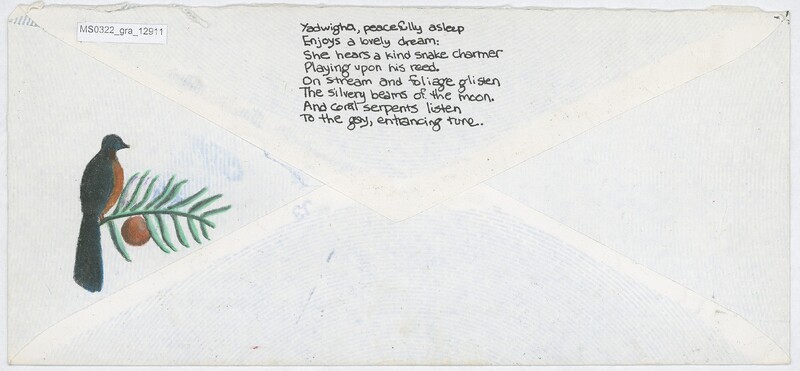 MS0322_gra_12911
Yadwigha, peacefully asleep
Enjoys a lovely dream:
She hears a kind snake charmer
Playing upon his reed.
On stream and foliage glisten
The silvery beams of the moon.
And coral serpents listen
To the gay, enhancing tune.